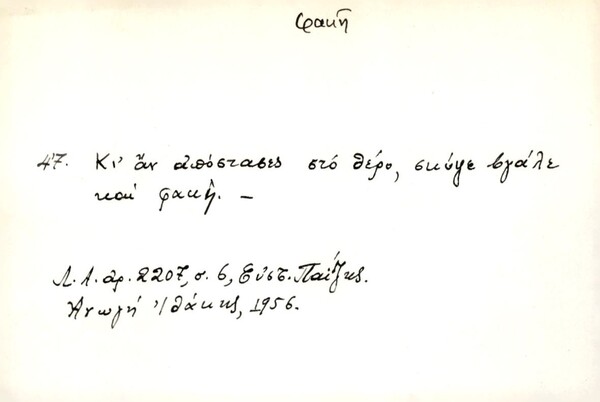 φακῆ
47. Κι' ἄν ἀπόστασες στό θέρο, σκύψε βγάλε
καί φακῆ. –
Λ.Α. ἀρ. 2207, σ. 6, Εὐστ. Παΐζης.
Ἀνωγή Ἰθάκης, 1956.